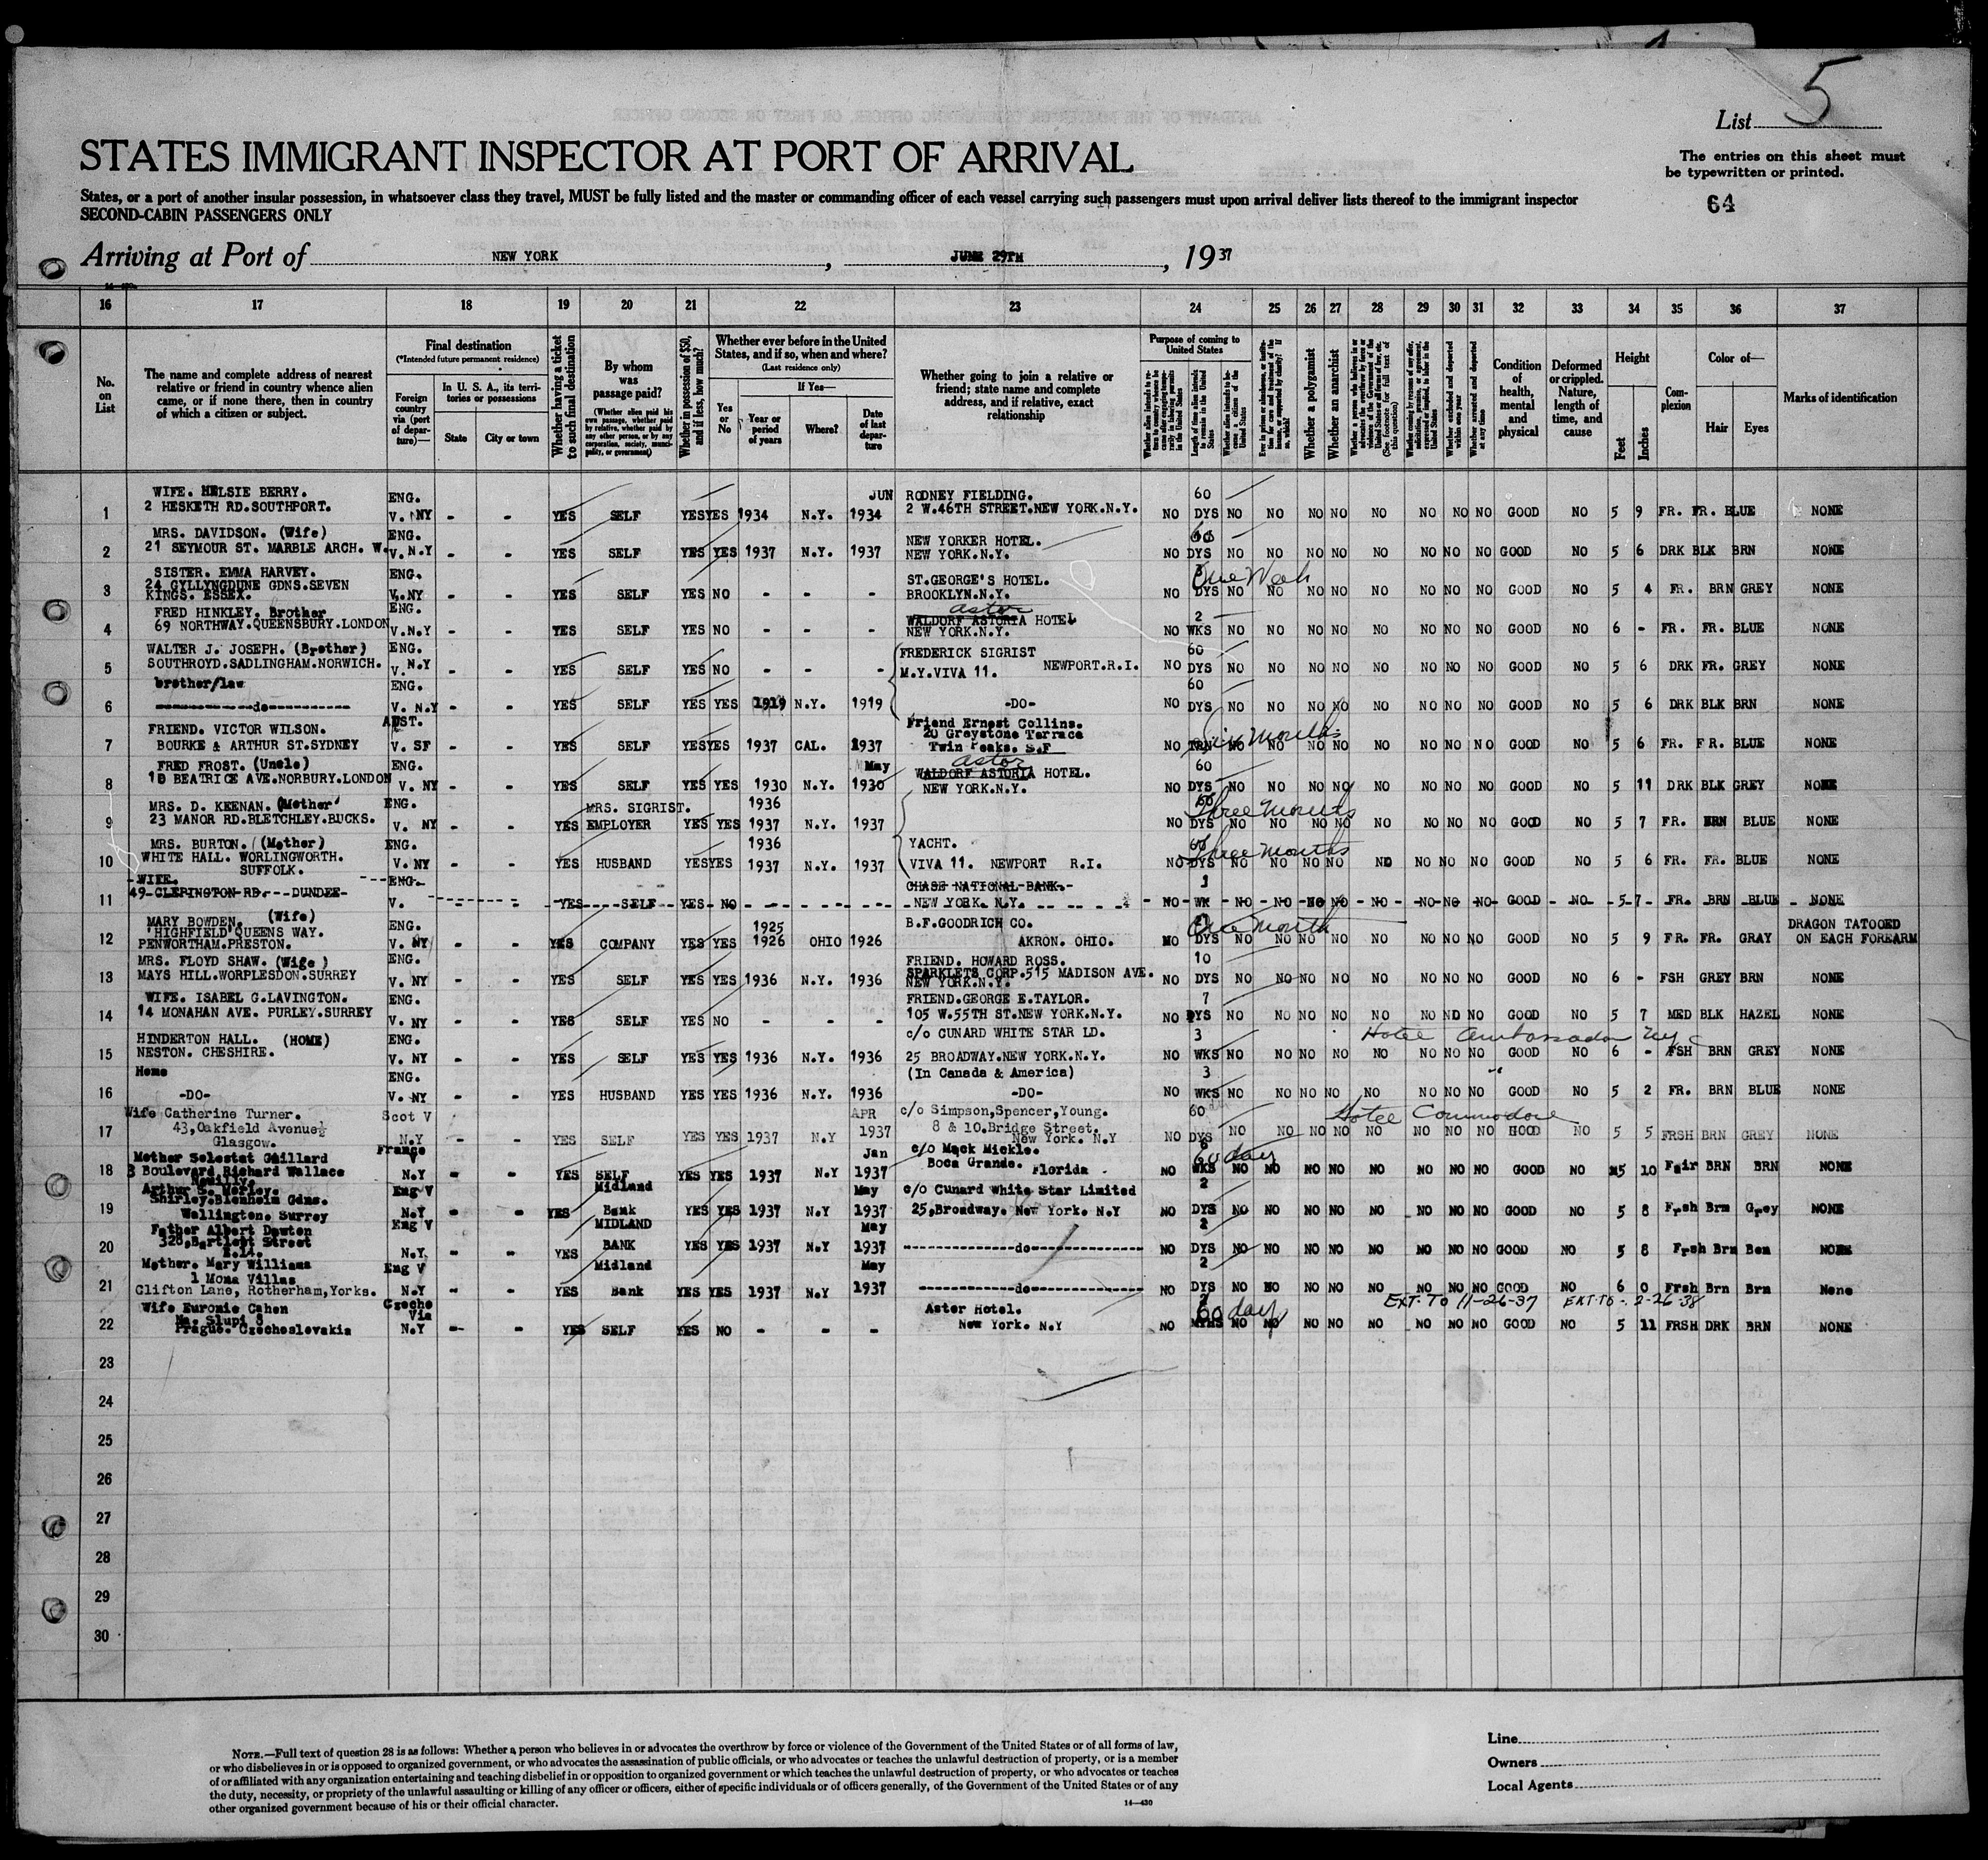 List 5
STATES IMMIGRANT INSPECTOR AT PORT OF ARRIVAL
The entries on this sheet must
be typewritten or printed.
States, or a port of another insular possession, in whatsoever class they travel, MUST be fully listed and the master or commanding officer of each vessel carrying such passengers must upon arrival deliver lists thereof to the immigrant inspector
SECOND-CABIN PASSENGERS ONLY
64
Arriving at Port of NEW YORK, JUNE 29TH, 1937
16 17 18 19 20 21 22 23 24 25 26 27 28 29 30 31 32 33 34 35 36 37
No. on List
The name and complete address of nearest relative or friend in country whence alien came, or if none there, then in country of which a citizen or subject.
Final destination
(*Intended future permanent residence)
Foreign country via (port of departure)—
In U. S. A., its territories or possessions
State
City or town
Whether having a ticket to such final destination
By whom was passage paid?
(Whether alien paid his own passage, whether paid by relative, whether paid by any other person, or by any corporation, society, municipality, or government)
Whether in possession of $50, and if less, how much?
Whether ever before in the United States, and if so, when and where?
(Last residence only)
Yes or No
If Yes—
Year or period of years
Where?
Date of last departure
Whether going to join a relative or friend; state name and complete address, and if relative, exact relationship
Purpose of coming to United States
Length of time alien intends to remain in the United States
Whether alien intends to become a citizen of the United States
Whether a polygamist
Whether an anarchist
Whether excluded and deported within one year
Whether arrested and deported at any time
Condition of health, mental and physical
Deformed or crippled. Nature, length of time, and cause
Height
Feet
Inches
Complexion
Color of—
Hair
Eyes
Marks of identification
WIFE. HELSIE BERRY. ENG. JUN RODNEY FIELDING. 60
1 2 HESKETH RD.SOUTHPORT. V. NY - - YES SELF YES YES 1934 N.Y. 1934 2 W.46TH STREET.NEW YORK.N.Y. NO DYS NO NO NO NO NO NO NO NO GOOD NO 5 9 FR. FR. BLUE NONE
MRS. DAVIDSON. (Wife) ENG. NEW YORKER HOTEL. 60
2 21 SEYMOUR ST. MARBLE ARCH. W. V. N.Y - - YES SELF YES YES 1937 N.Y. 1937 NEW YORK.N.Y. NO DYS NO NO NO NO NO NO NO NO GOOD NO 5 6 DRK BLK BRN NONE
SISTER. EMMA HARVEY. ENG. ST.GEORGE'S HOTEL. One Week
24 GYLLYNGDUNE GDNS.SEVEN
3 KINGS. ESSEX. V. NY - - YES SELF YES NO - - - BROOKLYN.N.Y. NO DYS NO NO NO NO NO NO NO NO GOOD NO 5 4 FR. BRN GREY NONE
FRED HINKLEY. Brother ENG. Astor
WALDORF ASTORIA HOTEL 2
4 69 NORTHWAY.QUEENSBURY.LONDON V.N.Y - - YES SELF YES NO - - - NEW YORK.N.Y. NO WKS NO NO NO NO NO NO NO NO GOOD NO 6 - FR. FR. BLUE NONE
WALTER J. JOSEPH. (Brother) ENG. FREDERICK SIGRIST 60
5 SOUTHROYD.SADLINGHAM.NORWICH. V. N.Y - - YES SELF YES NO - - - M.Y.VIVA 11. NEWPORT.R.I. NO DYS NO NO NO NO NO NO NO NO GOOD NO 5 6 DRK FR. GREY NONE
brother/law ENG. 60
6 ----do---- V. N.Y - - YES SELF YES YES 1919 N.Y. 1919 -DO- NO DYS NO NO NO NO NO NO NO NO GOOD NO 5 6 DRK BLK BRN NONE
FRIEND. VICTOR WILSON. AUST. Friend Ernest Collins.
20 Greystone Terrace Six Months
7 BOURKE & ARTHUR ST.SYDNEY V. SF - - YES SELF YES YES 1937 CAL. 1937 Twin Peaks. S.F NO NO NO NO NO NO NO NO NO GOOD NO 5 6 FR. FR. BLUE NONE
FRED FROST. (Uncle) ENG. May Astor 60
WALDORF ASTORIA HOTEL.
8 10 BEATRICE AVE.NORBURY.LONDON V. NY - - YES SELF YES YES 1930 N.Y. 1930 NEW YORK.N.Y. NO DYS NO NO NO NO NO NO NO NO GOOD NO 5 11 DRK BLK GREY NONE
MRS. D. KEENAN. (Mother) ENG. MRS. SIGRIST. 1936 60 Three Months
9 23 MANOR RD.BLETCHLEY.BUCKS. V. NY - - YES EMPLOYER YES YES 1937 N.Y. 1937 NO DYS NO NO NO NO NO NO NO NO GOOD NO 5 7 FR. BRN BLUE NONE
MRS. BURTON. (Mother) ENG. 1936 YACHT. 60 Three months
10 WHITE HALL. WORLINGWORTH. V. NY - - YES HUSBAND YES YES 1937 N.Y. 1937 VIVA 11. NEWPORT R.I. NO DYS NO NO NO NO NO NO NO NO GOOD NO 5 6 FR. FR. BLUE NONE
SUFFOLK.
WIFE. ENG. CHASE NATIONAL BANK. 1
11 49 CLEPINGTON RD. DUNDEE V. - - YES SELF YES NO NEW YORK. N.Y. NO WK NO NO NO NO NO NO NO NO GOOD NO 5 7 FR. BRN BLUE NONE
MARY BOWDEN. (Wife) ENG. 1925 B.F.GOODRICH CO. One Month DRAGON TATOOED
'HIGHFIELD' QUEENS WAY.
12 PENWORTHAM.PRESTON. V. NY - - YES COMPANY YES YES 1926 OHIO 1926 AKRON. OHIO. NO DYS NO NO NO NO NO NO NO NO GOOD NO 5 9 FR. FR. GRAY ON EACH FOREARM
MRS. FLOYD SHAW. (Wife) ENG. FRIEND. HOWARD ROSS. 10
SPARKLETS CORP.515 MADISON AVE.
13 MAYS HILL.WORPLESDON.SURREY V. NY - - YES SELF YES YES 1936 N.Y. 1936 NEW YORK.N.Y. NO DYS NO NO NO NO NO NO NO NO GOOD NO 6 - FSH GREY BRN NONE
WIFE. ISABEL G.LAVINGTON. ENG. FRIEND.GEORGE E.TAYLOR. 7
14 14 MONAHAN AVE. PURLEY.SURREY V. NY - - YES SELF YES NO - - - 105 W.55TH ST.NEW YORK.N.Y. NO DYS NO NO NO NO NO NO NO NO GOOD NO 5 7 MED BLK HAZEL NONE
HINDERTON HALL. (HOME) ENG. c/o CUNARD WHITE STAR LD. 3 Hotel Ambassador NYC
15 NESTON. CHESHIRE. V. NY - - YES SELF YES YES 1936 N.Y. 1936 25 BROADWAY.NEW YORK.N.Y. NO WKS NO NO NO NO NO NO NO NO GOOD NO 6 - FSH BRN GREY NONE
Home ENG. (In Canada & America) 3 "
16 -DO- V. NY - - YES HUSBAND YES YES 1936 N.Y. 1936 -DO- NO WKS NO NO NO NO NO NO NO NO GOOD NO 5 2 FR. BRN BLUE NONE
Wife Catherine Turner. Scot V APR c/o Simpson,Spencer,Young. 60 Hotel Commodore
17 43,Oakfield Avenue 8 & 10.Bridge Street.
Glasgow. N.Y - - YES SELF YES YES 1937 N.Y 1937 New York. N.Y NO DYS NO NO NO NO NO NO NO NO HOOD NO 5 5 FRSH BRN GREY NONE
Mother Selestat Gaillard France V Jan c/o Mack Mickle. 60 days
18 3 Boulevard Richard Wallace N.Y - - YES SELF YES YES 1937 N.Y 1937 Boca Grande. Florida NO WKS NO NO NO NO NO NO NO NO GOOD NO 5 10 Fair BRN BRN NONE
Neuilly.
Arthur S. Worley. Eng V Midland May c/o Cunard White Star Limited 2
Shirley.Blenheim Gdns.
19 Wallington. Surrey N.Y - - YES Bank YES YES 1937 N.Y 1937 25,Broadway. New York. N.Y NO DYS NO NO NO NO NO NO NO NO GOOD NO 5 8 Frsh Brn Grey NONE
Father Albert Dowton Eng V MIDLAND May 2
20 328,Bartlett Street BANK
E.14. N.Y. - - YES YES YES 1937 N.Y 1937 ----do---- NO DYS NO NO NO NO NO NO NO NO GOOD NO 5 8 Frsh Brn NONE
Mother. Mary Williams Eng V Midland May 2
1 Mona Villas
21 Clifton Lane, Rotherham,Yorks. N.Y - - YES Bank YES YES 1937 N.Y 1937 ----do---- NO DYS NO NO NO NO NO NO NO NO GOOD NO 6 0 Frsh Brn Brn None
Wife Euromie Cahen Czecho Via Astor Hotel. 60 days EXT. TO 11-26-37 EXT. TO - 2-26-38
22 Na. Slupi 8
Prague. Czechoslovakia N.Y - - YES SELF YES NO - - - New York. N.Y NO NO NO NO NO NO NO NO NO GOOD NO 5 11 FRSH DRK BRN NONE
23
24
25
26
27
28
29
30
NOTE.—Full text of question 28 is as follows: Whether a person who believes in or advocates the overthrow by force or violence of the Government of the United States or of all forms of law,
or who disbelieves in or is opposed to organized government, or who advocates the assassination of public officials, or who advocates or teaches the unlawful destruction of property, or is a member
of or affiliated with any organization entertaining and teaching disbelief in or opposition to organized government or which teaches the unlawful destruction of property, or who advocates or teaches
the duty, necessity, or propriety of the unlawful assaulting or killing of any officer or officers, either of specific individuals or of officers generally, of the Government of the United States or of any
other organized government because of his or their official character.
14—430
Line
Owners
Local Agents